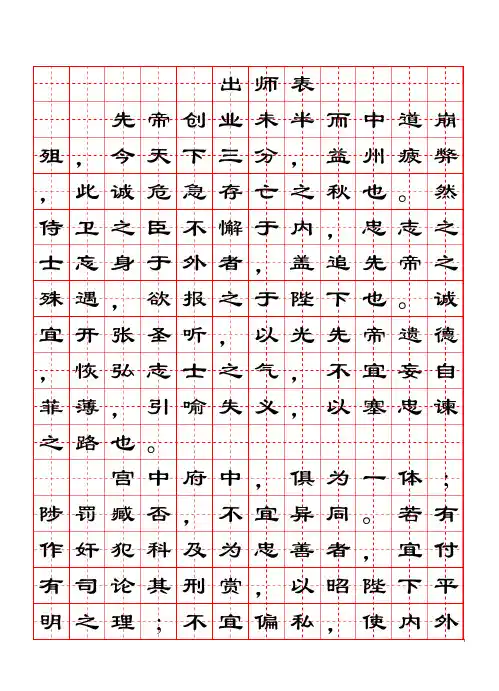 出师表
先帝创业未半而中道崩
殂，今天下三分，益州疲弊
，此诚危急存亡之秋也。然
侍卫之臣不懈于内，忠志之
士忘身于外者，盖追先帝之
殊遇，欲报之于陛下也。诚
宜开张圣听，以光先帝遗德
，恢弘志士之气，不宜妄自
菲薄，引喻失义，以塞忠谏
之路也。
宫中府中，俱为一体；
陟罚臧否，不宜异同。若有
作奸犯科及为忠善者，宜付
有司论其刑赏，以昭陛下平
明之理；不宜偏私，使内外